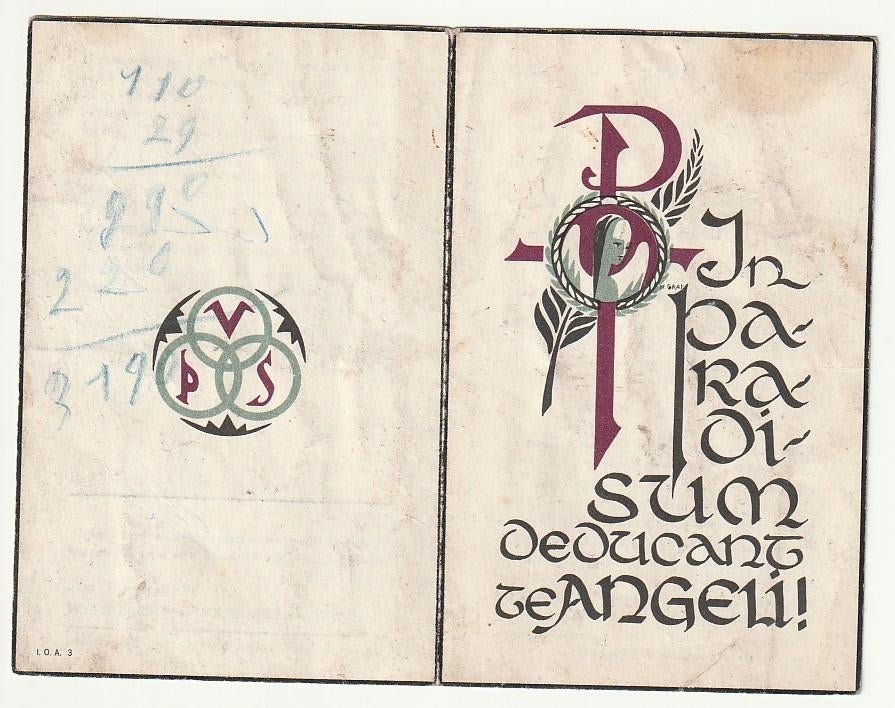 110
29
990
220
3190
V
P S
I. O. A. 3
In
pa-
ra-
di-
sum
deducant
te Angeli!